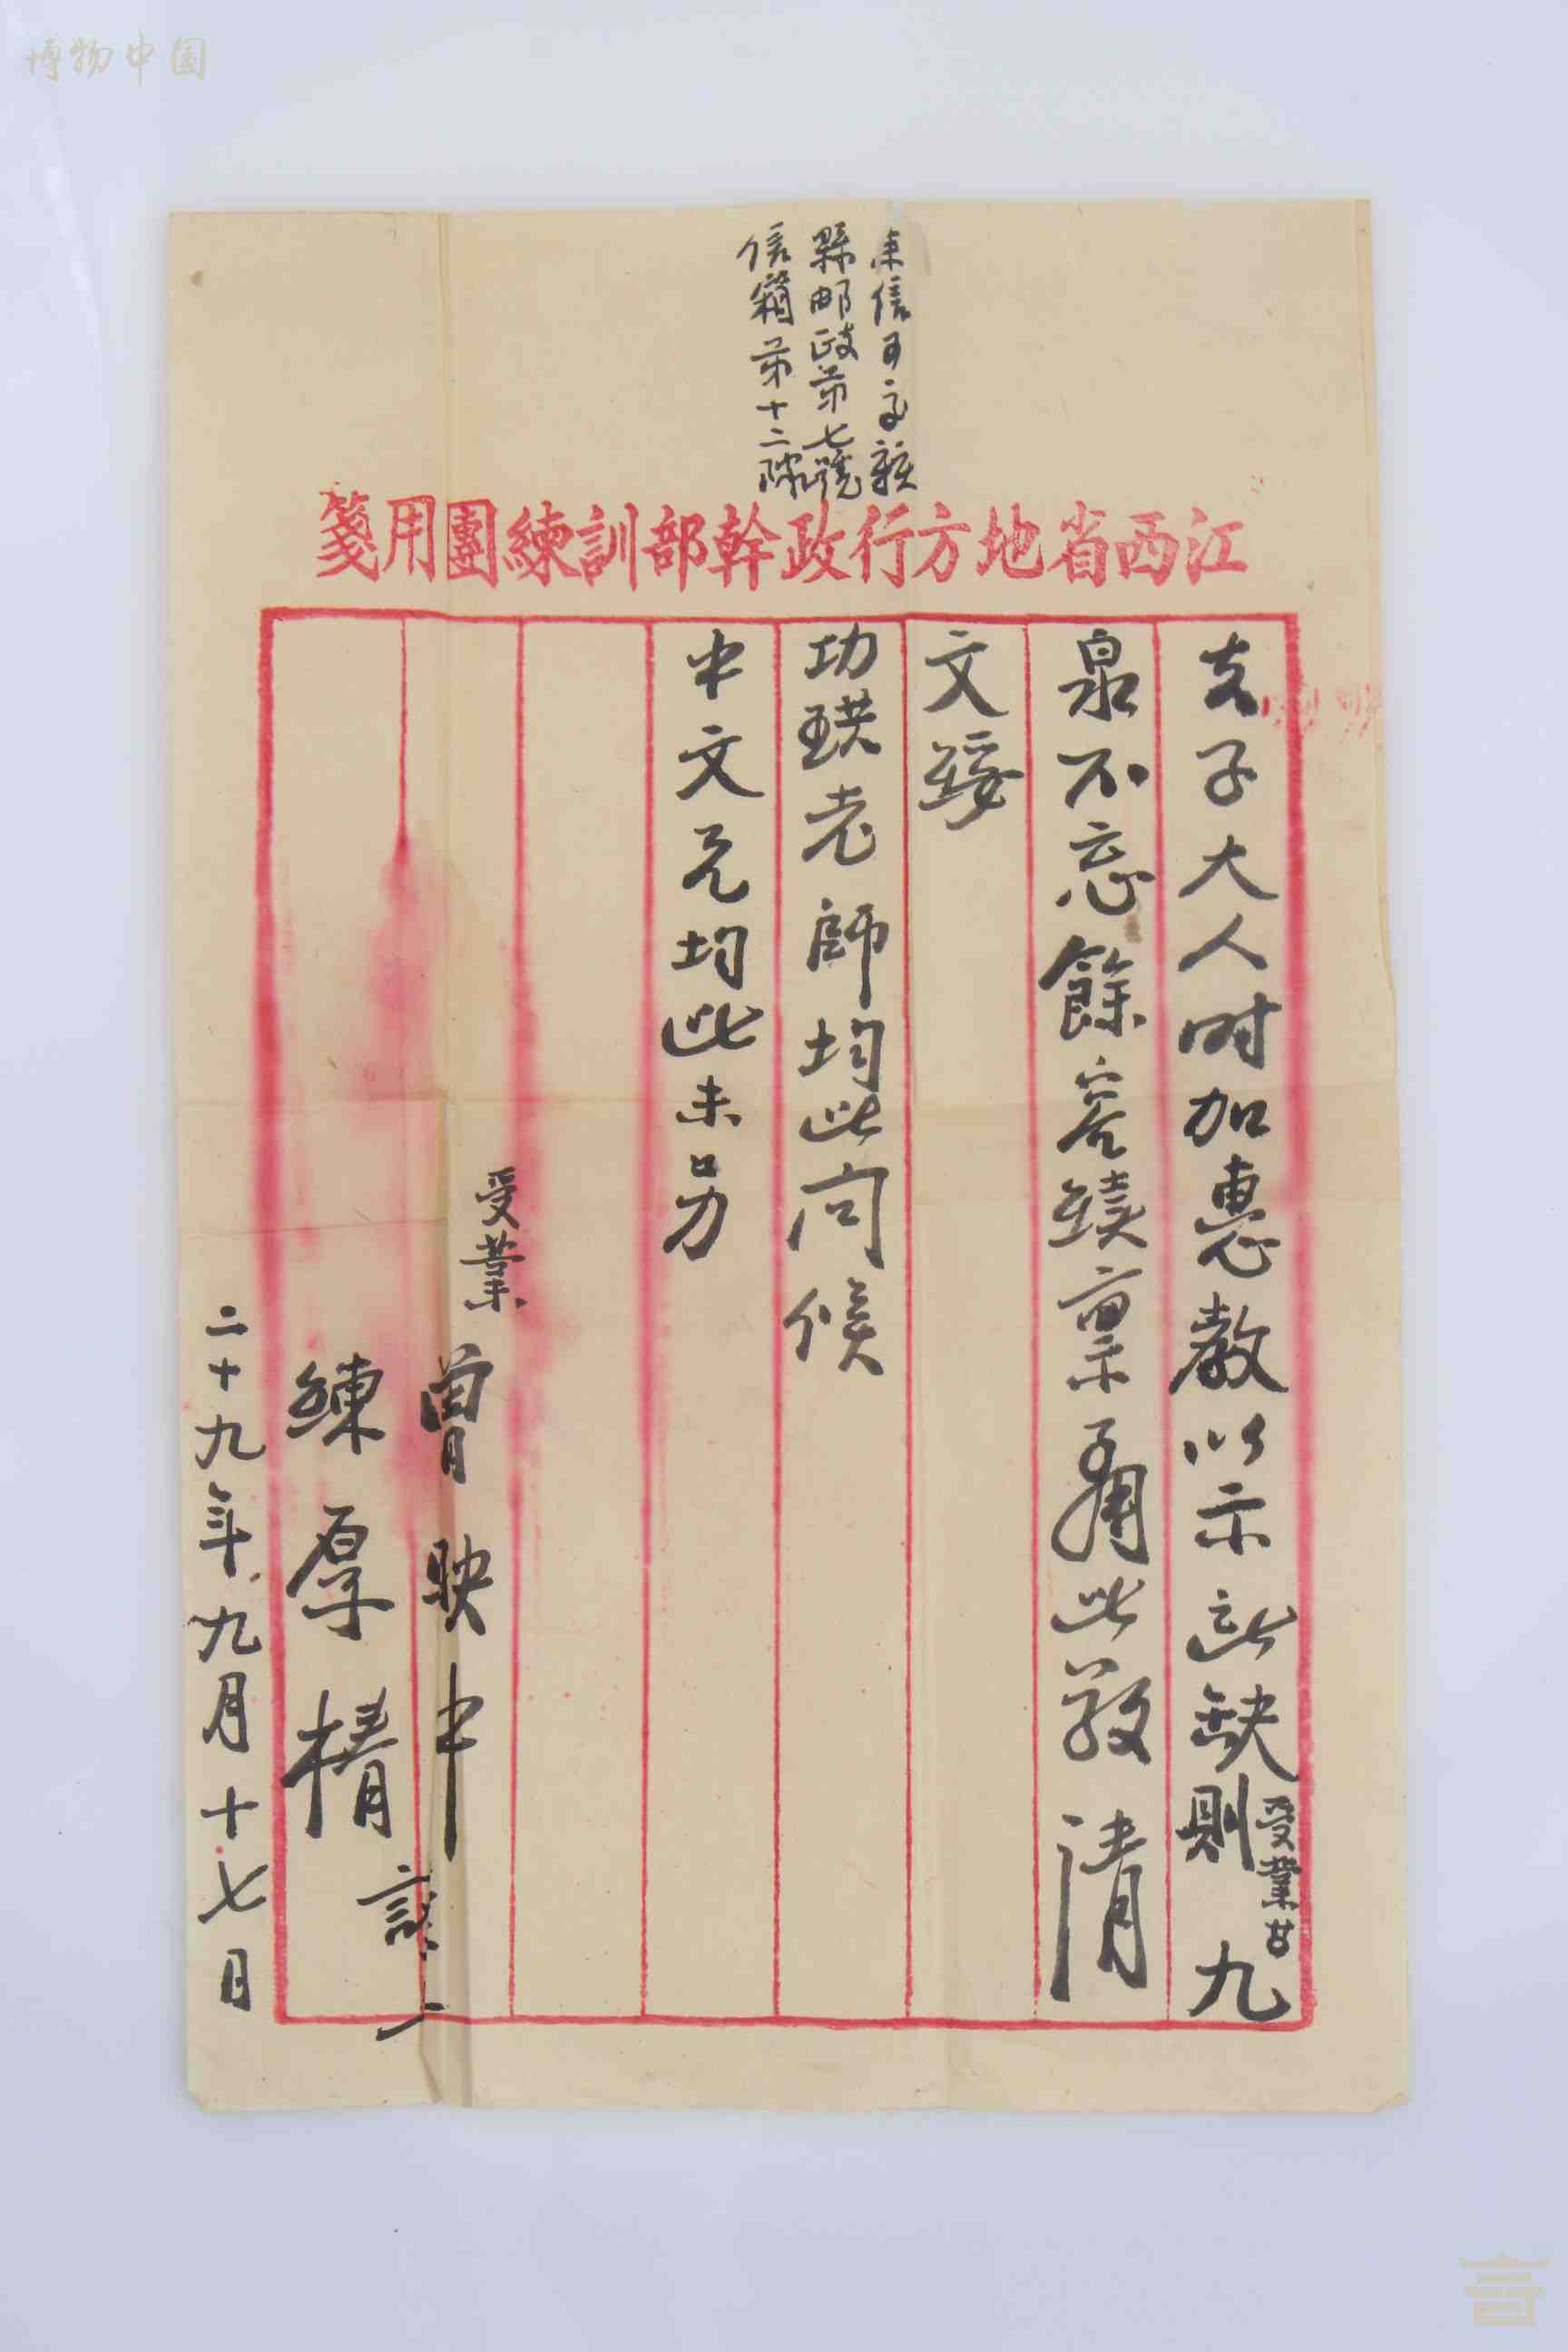 博物中国
来信可交赣
縣邮政第七號
信箱第十二隊
江西省地方行政幹部訓練團用箋
夫子大人时加惠教以示缺則受業廿九
泉不忘餘容續稟耑此敬請
文綏
功珙老師均此问候
中文兄均此未另
受業 曾映中
練厚楕 謹上
二十九年九月十七日